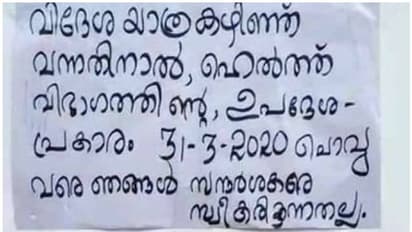 വിദേശ യാത്രകഴിഞ്ഞ്
വന്നതിനാൽ, ഹെൽത്ത്
വിഭാഗത്തിന്റെ, ഉപദേശ-
പ്രകാരം 31-3-2020 ചൊവ്വ
വരെ ഞങ്ങൾ സന്ദർശകരെ
സ്വീകരിക്കുന്നതല്ല.